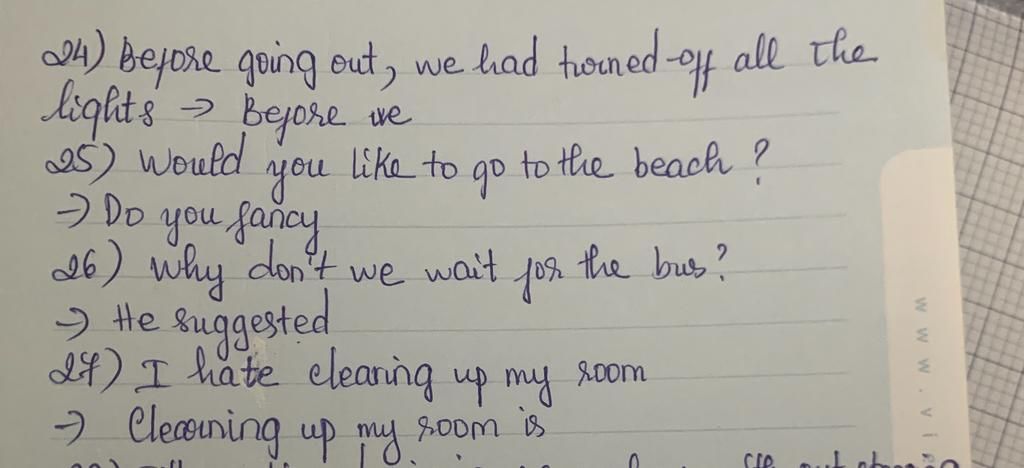 24) Before going out, we had turned-off all the
lights → Before we
25) Would you like to go to the beach?
→ Do you fancy
26) Why don't we wait for the bus?
→ He suggested
27) I hate clearing up my room
→ Clearning up my room is
www.vi